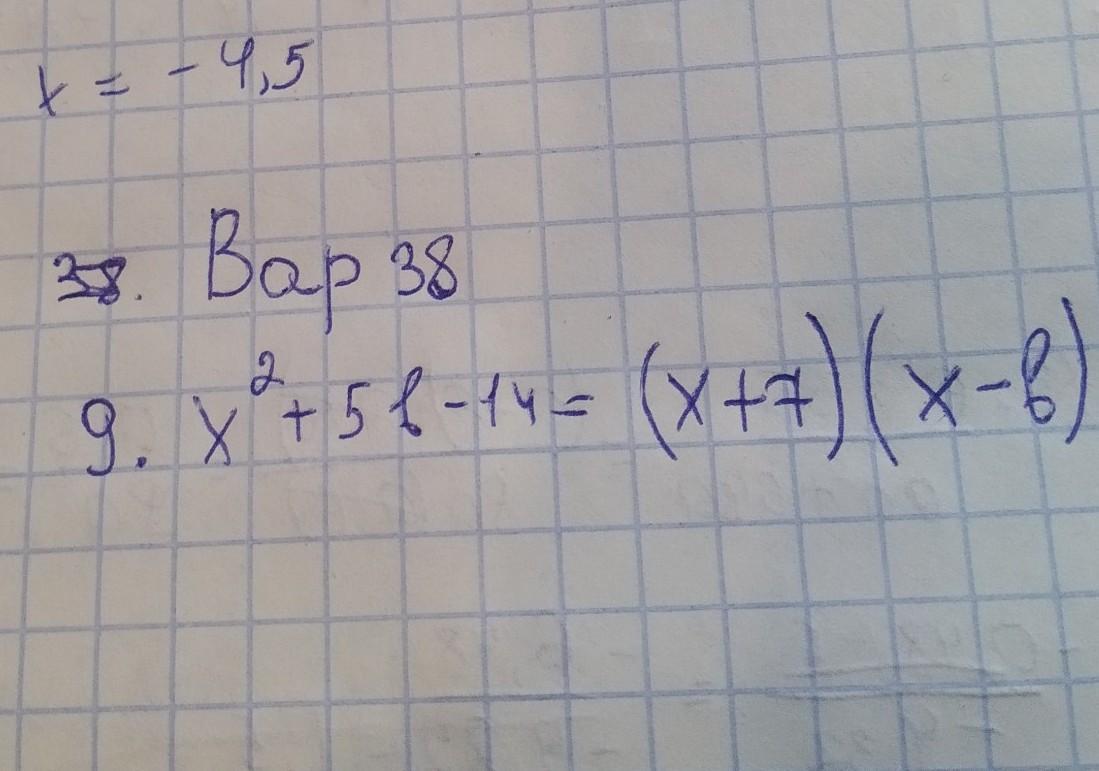 x = -4,5
38. Вар 38
9. x² + 5в - 14 = (x+7)(x-в)